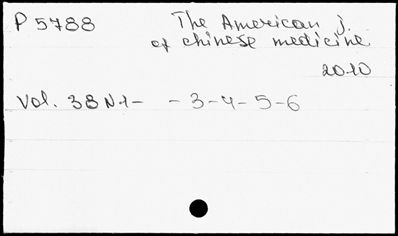 P 5788 The American j.
of chinese medicine
2010
Vol. 38 N.1- - 3-4-5-6